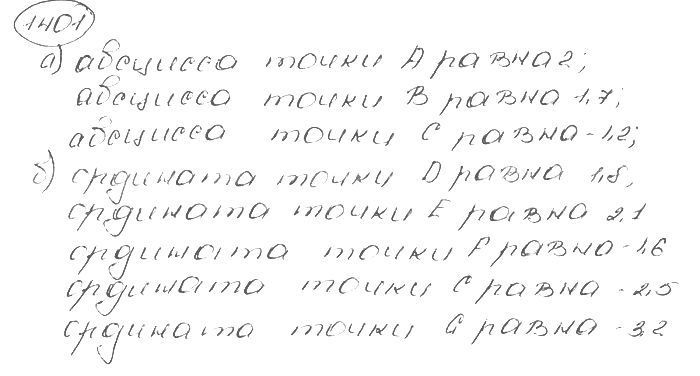 1401
а) абсцисса точки А равна 2;
абсцисса точки В равна -1,7;
абсцисса точки С равна -1,2;
б) ордината точки D равна 1,8,
ордината точки E равна 2,1
ордината точки F равна -1,6
ордината точки C равна -2,5
ордината точки G равна -3,2